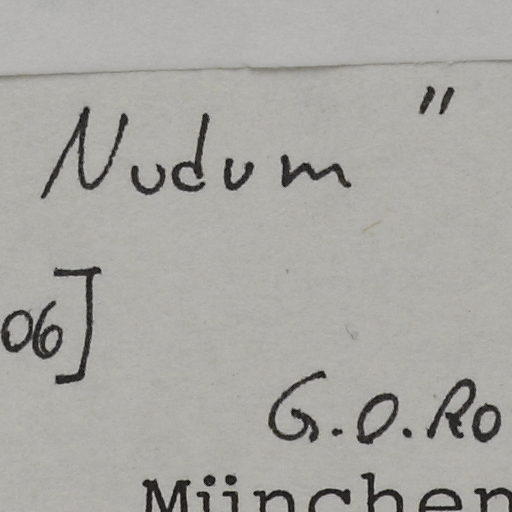 Nudum "
06]
G.O.Ro
München